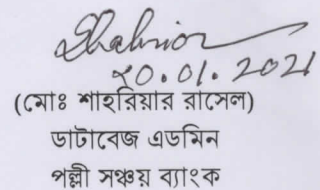 Shahrior
২০.০১.২০২১
(মোঃ শাহরিয়ার রাসেল)
ডাটাবেজ এডমিন
পল্লী সঞ্চয় ব্যাংক